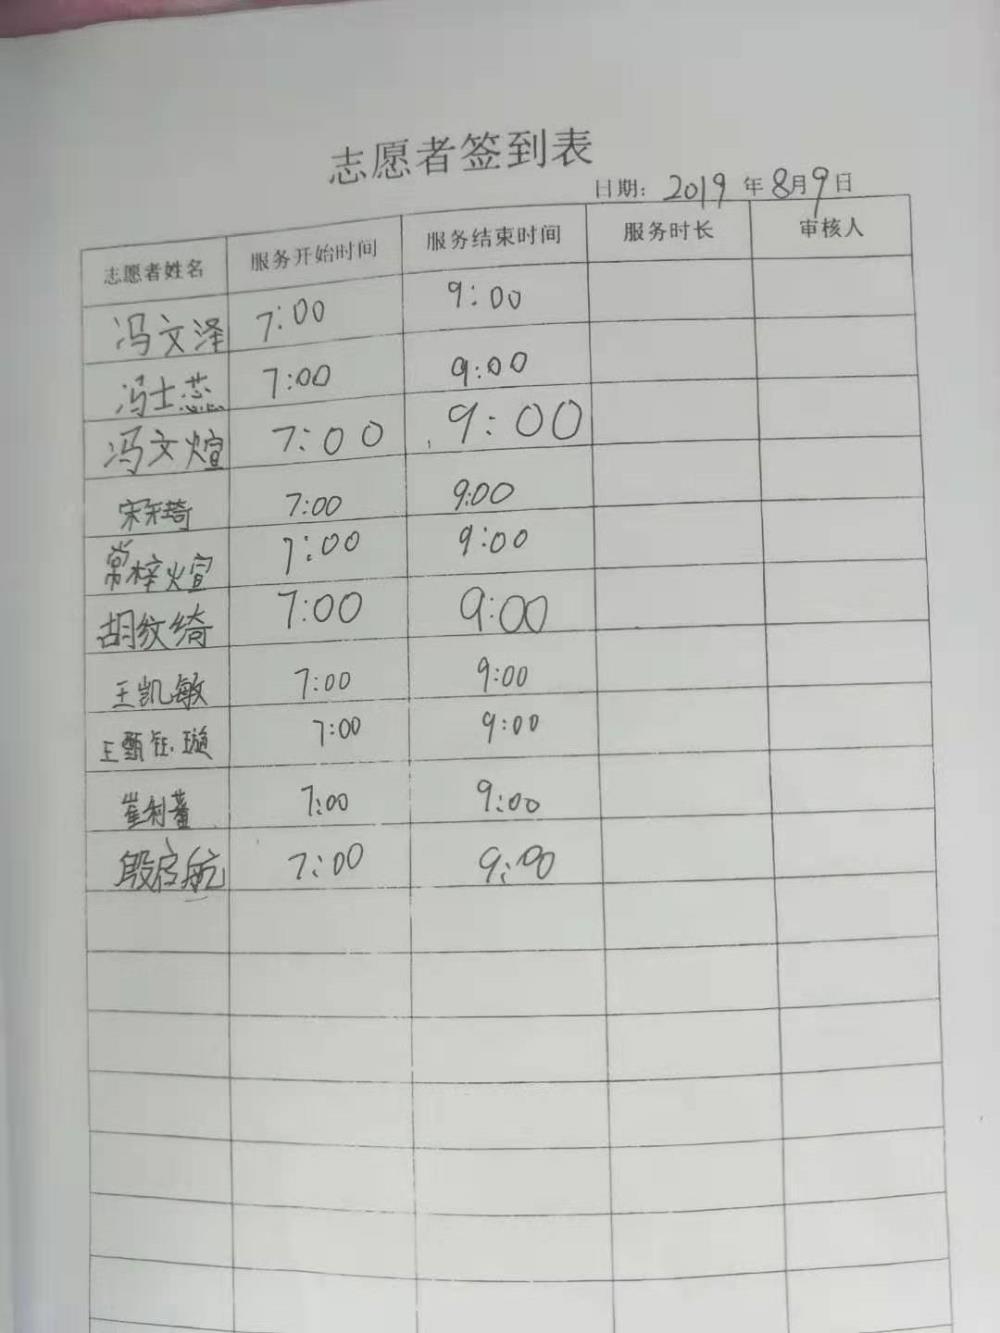 志愿者签到表
日期: 2019 年 8月9日
志愿者姓名 服务开始时间 服务结束时间 服务时长 审核人
冯文泽 7:00 9:00
冯士蕊 7:00 9:00
冯文煊 7:00 9:00
7:00 9:00
常梓煊 7:00 9:00
胡纹绮 7:00 9:00
王凯敏 7:00 9:00
王甄钰璇 7:00 9:00
崔利蕫 7:00 9:00
殷启航 7:00 9:00